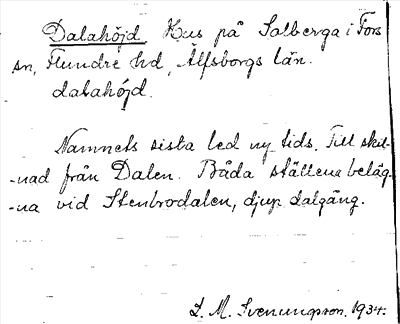 Dalahöjd Hus på Solberga i Fors
sn, Flundre hd, Älfsborgs län.
dalahöjd.
Namnets sista led ny tids. Till skil-
-nad från Dalen. Båda ställena beläg-
-na vid Stenbrodalen, djup dalgång.
L. M. Svenungsson. 1934.